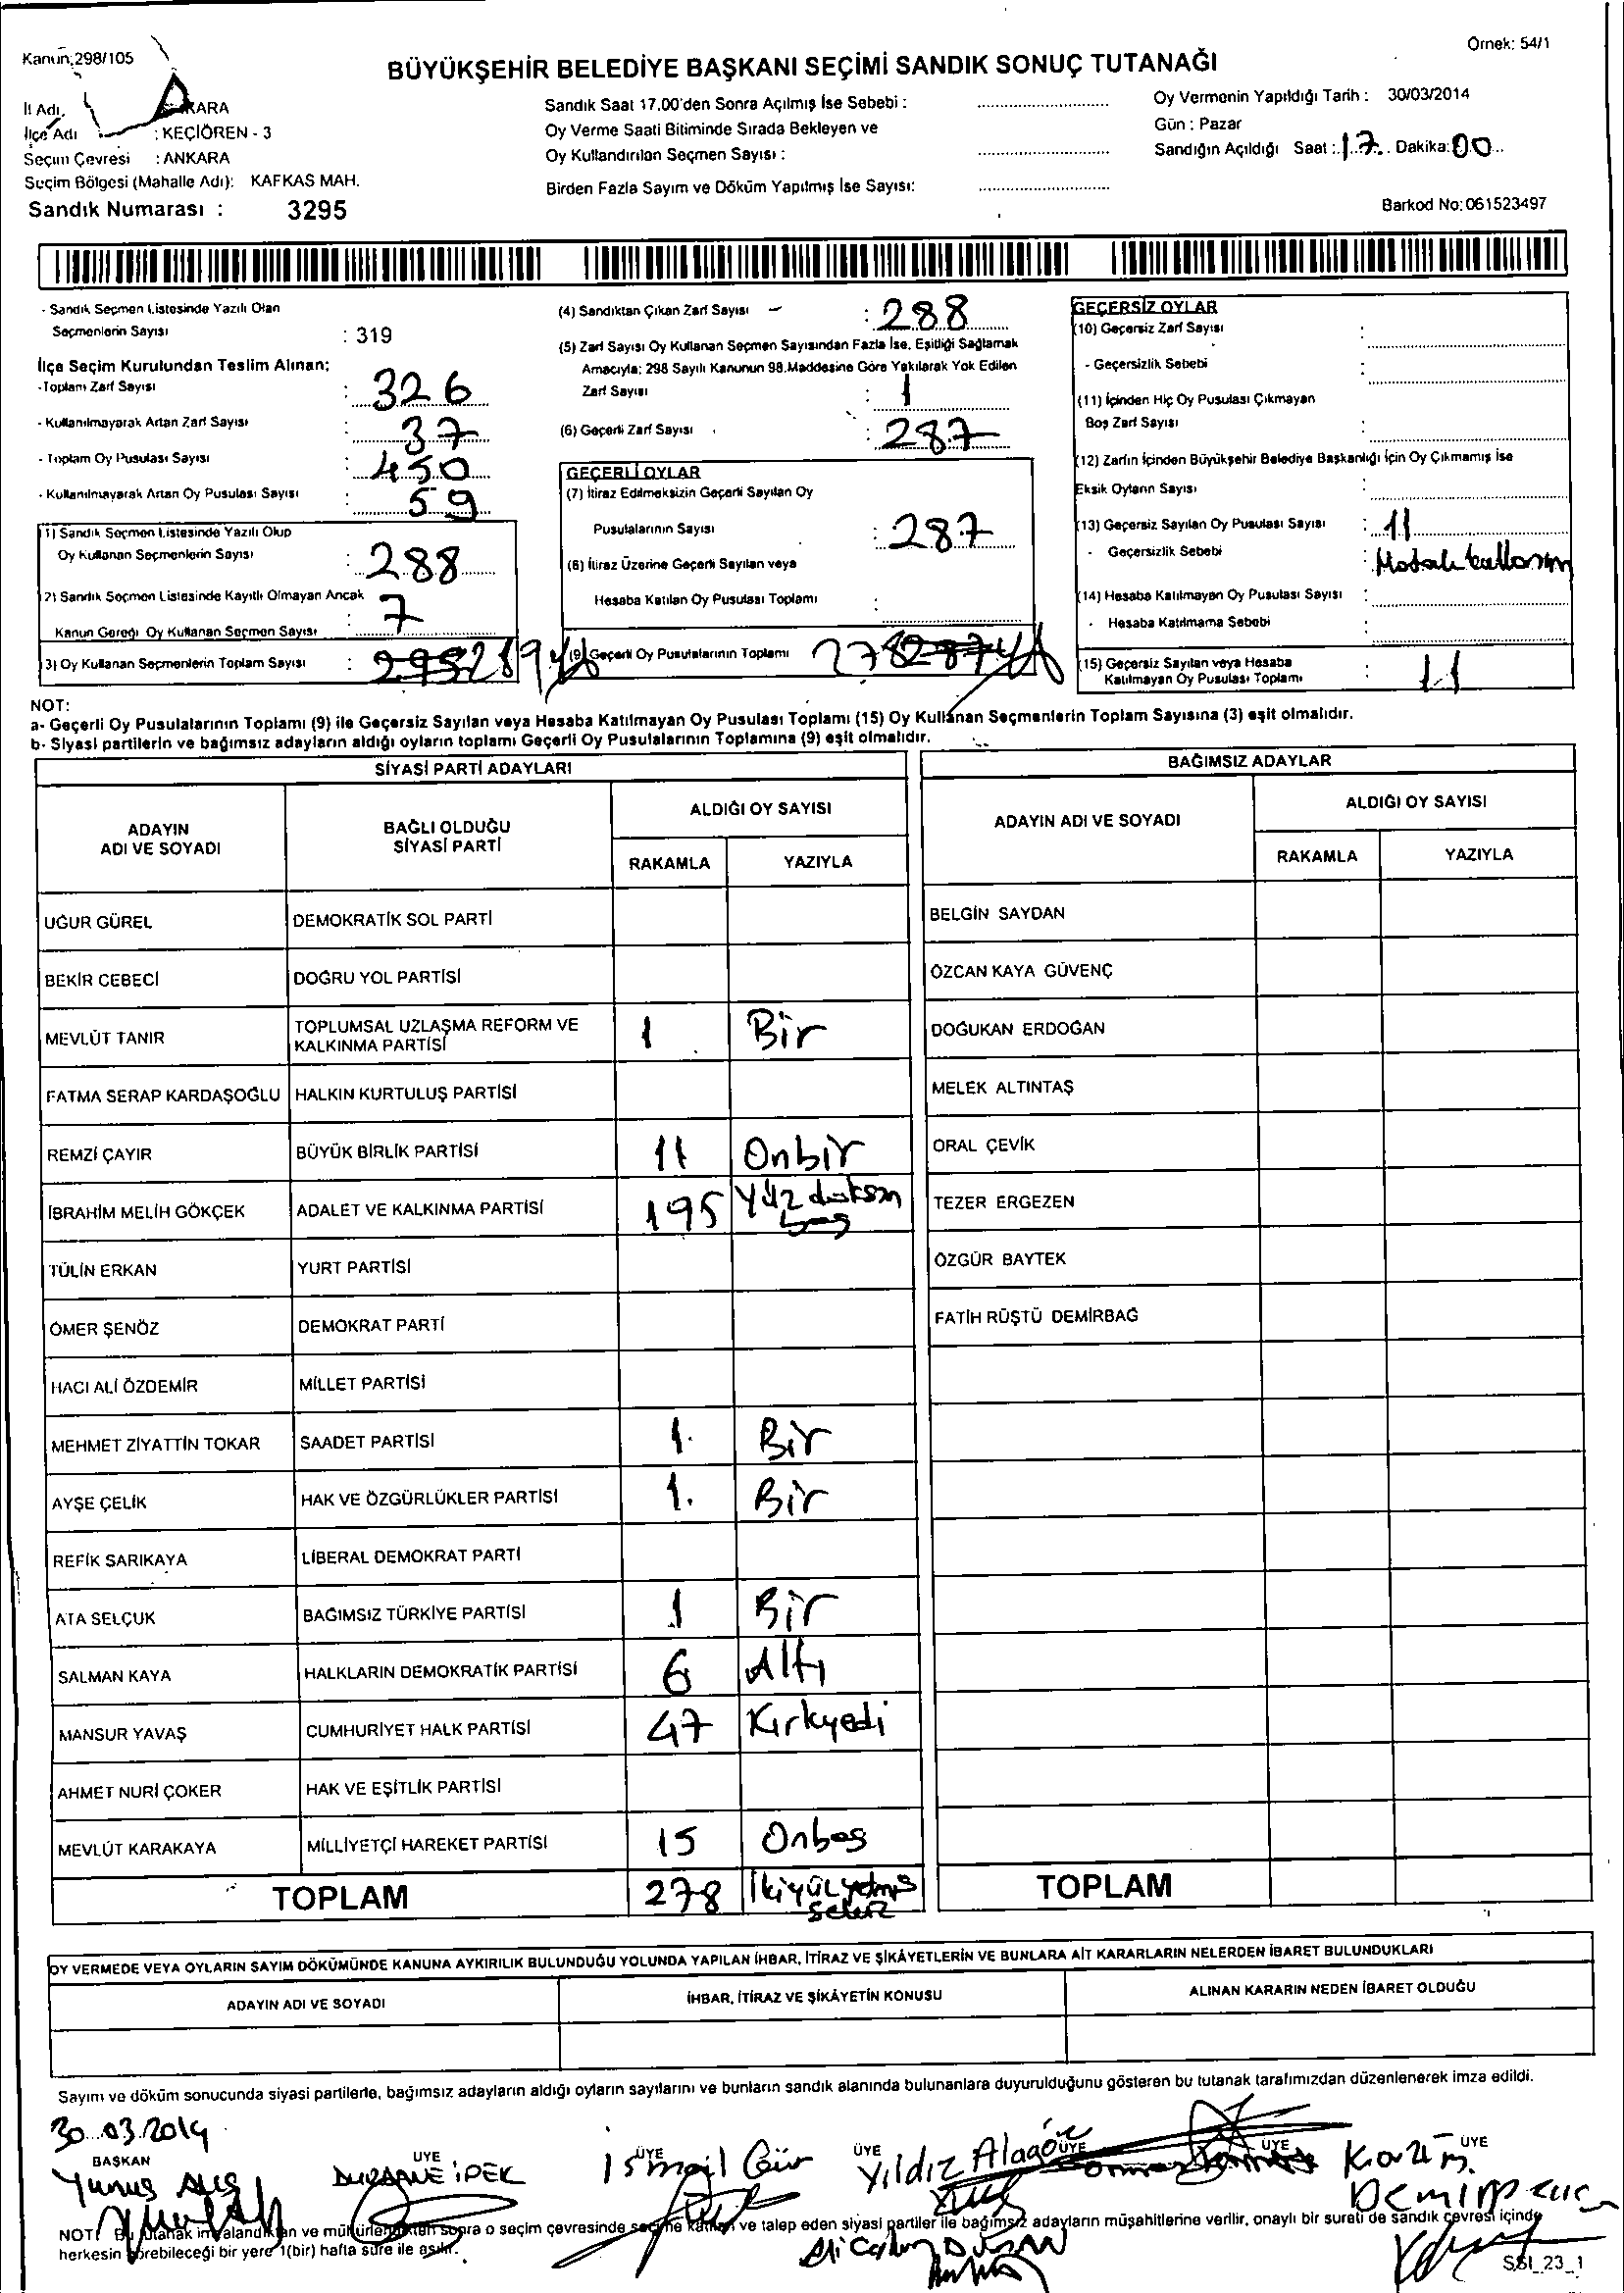 Kanun:298/105
Örnek: 54/1
BÜYÜKŞEHİR BELEDİYE BAŞKANI SEÇİMİ SANDIK SONUÇ TUTANAĞI
İl Adı.
KARA
İlçe Adı : KEÇİÖREN - 3
Seçim Çevresi : ANKARA
Seçim Bölgesi (Mahalle Adı): KAFKAS MAH.
Sandık Numarası : 3295
Sandık Saat 17.00'den Sonra Açılmış İse Sebebi :
Oy Verme Saati Bitiminde Sırada Bekleyen ve
Oy Kullandırılan Seçmen Sayısı :
Birden Fazla Sayım ve Döküm Yapılmış İse Sayısı:
Oy Vermenin Yapıldığı Tarih : 30/03/2014
Gün : Pazar
Sandığın Açıldığı Saat : 17 Dakika: 00
Barkod No: 061523497
- Sandık Seçmen Listesinde Yazılı Olan
Seçmenlerin Sayısı : 319
İlçe Seçim Kurulundan Teslim Alınan:
-Toplam Zarf Sayısı : 326
- Kullanılmayarak Artan Zarf Sayısı : 37
- Toplam Oy Pusulası Sayısı : 450
- Kullanılmayarak Artan Oy Pusulası Sayısı : 59
1) Sandık Seçmen Listesinde Yazılı Olup
Oy Kullanan Seçmenlerin Sayısı : 288
2) Sandık Seçmen Listesinde Kayıtlı Olmayan Ancak
Kanun Gereği Oy Kullanan Seçmen Sayısı : 7
3) Oy Kullanan Seçmenlerin Toplam Sayısı : 295 289
(4) Sandıktan Çıkan Zarf Sayısı : 288
(5) Zarf Sayısı Oy Kullanan Seçmen Sayısından Fazla İse, Eşitliği Sağlamak
Amacıyla; 298 Sayılı Kanunun 98.Maddesine Göre Yakılarak Yok Edilen
Zarf Sayısı : 1
(6) Geçerli Zarf Sayısı : 287
GEÇERLİ OYLAR
(7) İtiraz Edilmeksizin Geçerli Sayılan Oy
Pusulalarının Sayısı : 287
(8) İtiraz Üzerine Geçerli Sayılan veya
Hesaba Katılan Oy Pusulası Toplamı :
(9) Geçerli Oy Pusulalarının Toplamı 278 287
GEÇERSİZ OYLAR
(10) Geçersiz Zarf Sayısı :
- Geçersizlik Sebebi :
(11) İçinden Hiç Oy Pusulası Çıkmayan
Boş Zarf Sayısı :
(12) Zarfın İçinden Büyükşehir Belediye Başkanlığı İçin Oy Çıkmamış İse
Eksik Oyların Sayısı :
(13) Geçersiz Sayılan Oy Pusulası Sayısı : 11
- Geçersizlik Sebebi :
(14) Hesaba Katılmayan Oy Pusulası Sayısı :
- Hesaba Katılmama Sebebi :
(15) Geçersiz Sayılan veya Hesaba
Katılmayan Oy Pusulası Toplamı : 11
NOT:
a- Geçerli Oy Pusulalarının Toplamı (9) ile Geçersiz Sayılan veya Hesaba Katılmayan Oy Pusulası Toplamı (15) Oy Kullanan Seçmenlerin Toplam Sayısına (3) eşit olmalıdır.
b- Siyasi partilerin ve bağımsız adayların aldığı oyların toplamı Geçerli Oy Pusulalarının Toplamına (9) eşit olmalıdır.
SİYASİ PARTİ ADAYLARI
ADAYIN ADI VE SOYADI
BAĞLI OLDUĞU SİYASİ PARTİ
ALDIĞI OY SAYISI
RAKAMLA YAZIYLA
UĞUR GÜREL DEMOKRATİK SOL PARTİ
BEKİR CEBECİ DOĞRU YOL PARTİSİ
MEVLÜT TANIR TOPLUMSAL UZLAŞMA REFORM VE KALKINMA PARTİSİ 1 Bir
FATMA SERAP KARDAŞOĞLU HALKIN KURTULUŞ PARTİSİ
REMZİ ÇAYIR BÜYÜK BİRLİK PARTİSİ 11 Onbir
İBRAHİM MELİH GÖKÇEK ADALET VE KALKINMA PARTİSİ 195 Yüz doksan beş
TÜLİN ERKAN YURT PARTİSİ
ÖMER ŞENÖZ DEMOKRAT PARTİ
HACI ALİ ÖZDEMİR MİLLET PARTİSİ
MEHMET ZİYATTİN TOKAR SAADET PARTİSİ 1. Bir
AYŞE ÇELİK HAK VE ÖZGÜRLÜKLER PARTİSİ 1. Bir
REFİK SARIKAYA LİBERAL DEMOKRAT PARTİ
ATA SELÇUK BAĞIMSIZ TÜRKİYE PARTİSİ 1 Bir
SALMAN KAYA HALKLARIN DEMOKRATİK PARTİSİ 6 Altı
MANSUR YAVAŞ CUMHURİYET HALK PARTİSİ 47 Kırkyedi
AHMET NURİ ÇOKER HAK VE EŞİTLİK PARTİSİ
MEVLÜT KARAKAYA MİLLİYETÇİ HAREKET PARTİSİ 15 Onbeş
TOPLAM 278 İkiyüzyetmiş sekiz
BAĞIMSIZ ADAYLAR
ADAYIN ADI VE SOYADI
ALDIĞI OY SAYISI
RAKAMLA YAZIYLA
BELGİN SAYDAN
ÖZCAN KAYA GÜVENÇ
DOĞUKAN ERDOĞAN
MELEK ALTINTAŞ
ORAL ÇEVİK
TEZER ERGEZEN
ÖZGÜR BAYTEK
FATİH RÜŞTÜ DEMİRBAĞ
TOPLAM
OY VERMEDE VEYA OYLARIN SAYIM DÖKÜMÜNDE KANUNA AYKIRILIK BULUNDUĞU YOLUNDA YAPILAN İHBAR, İTİRAZ VE ŞİKÂYETLERİN VE BUNLARA AİT KARARLARIN NELERDEN İBARET BULUNDUKLARI
ADAYIN ADI VE SOYADI
İHBAR, İTİRAZ VE ŞİKÂYETİN KONUSU
ALINAN KARARIN NEDEN İBARET OLDUĞU
Sayım ve döküm sonucunda siyasi partilerle, bağımsız adayların aldığı oyların sayılarını ve bunların sandık alanında bulunanlara duyurulduğunu gösteren bu tutanak tarafımızdan düzenlenerek imza edildi.
30.03.2014
BAŞKAN ÜYE ÜYE ÜYE ÜYE ÜYE ÜYE
Yunus
İPEK
İsmail Gür
Yıldız Alagöz
Kazım
NOT: Bu tutanak imzalandıktan ve mühürlendikten sonra o seçim çevresinde seçime katılan ve talep eden siyasi partiler ile bağımsız adayların müşahitlerine verilir, onaylı bir sureti de sandık çevresi içinde
herkesin görebileceği bir yere 1(bir) hafta süre ile asılır.
SSI_23_1